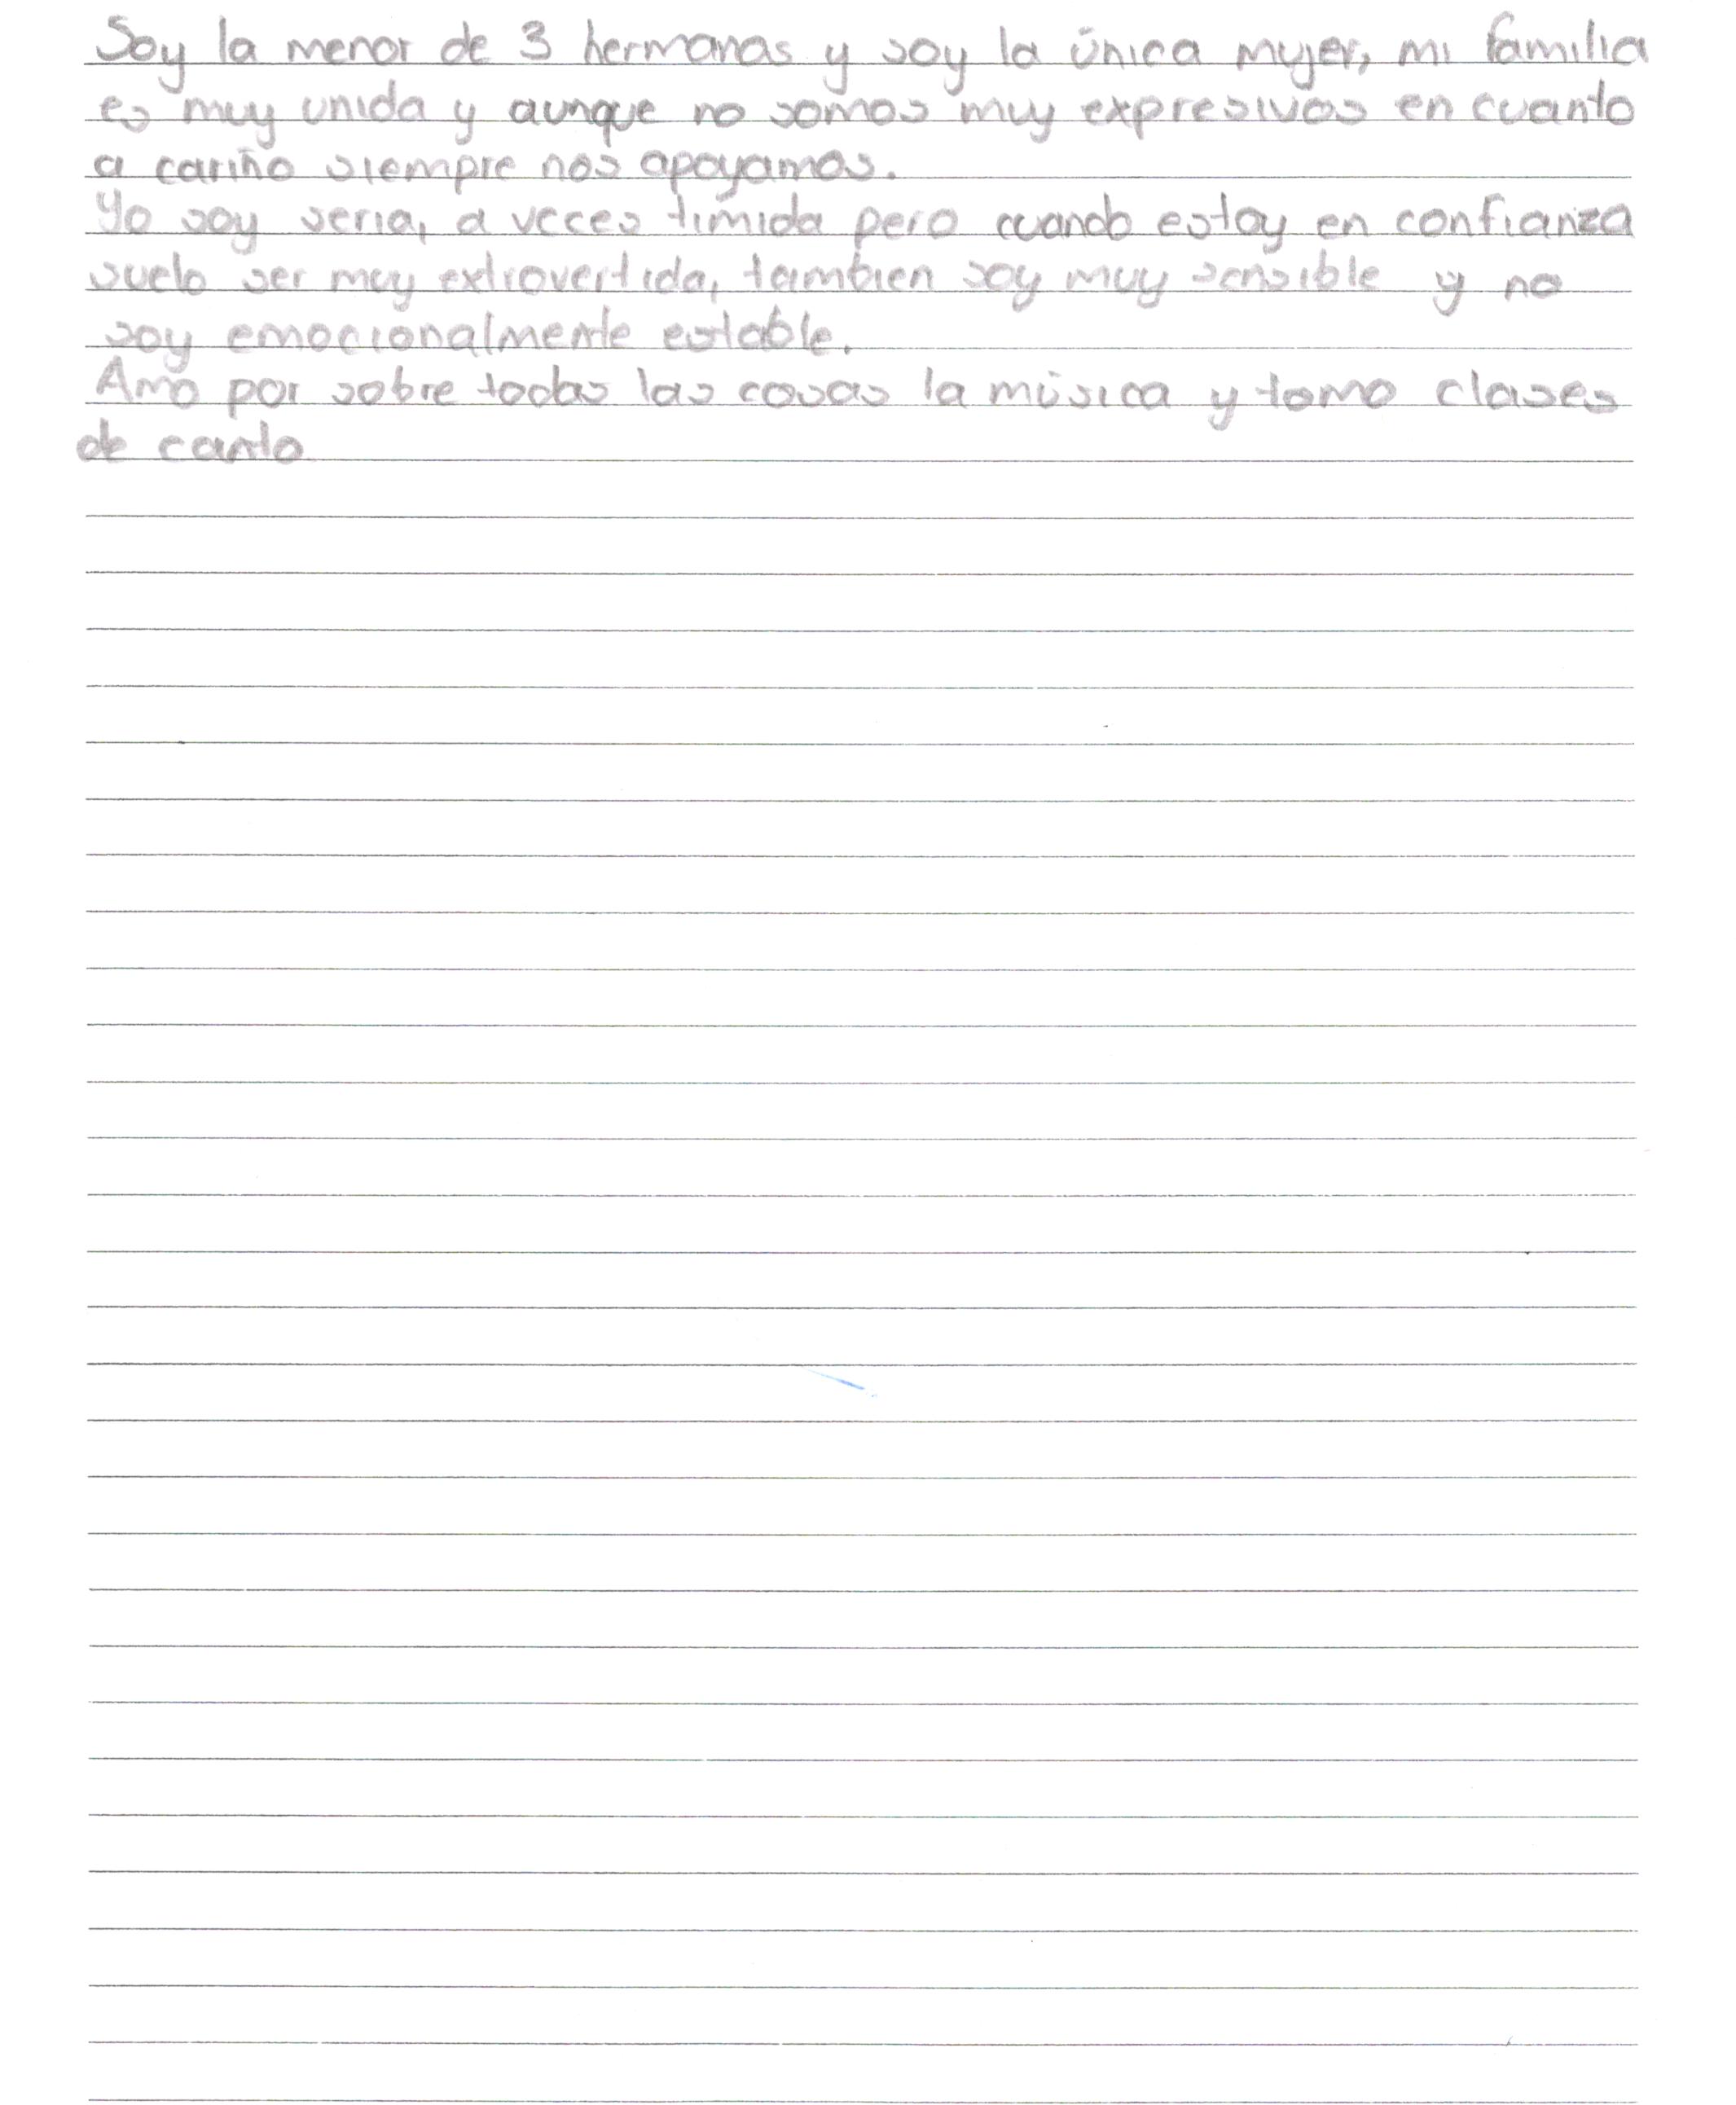 Soy la menor de 3 hermanas y soy la única mujer, mi familia
es muy unida y aunque no somos muy expresivos en cuanto
a cariño siempre nos apoyamos.
Yo soy seria, a veces tímida pero cuando estoy en confianza
suelo ser muy extrovertida, tambien soy muy sensible y no
soy emocionalmente estable.
Amo por sobre todas las cosas la música y tomo clases
de canto